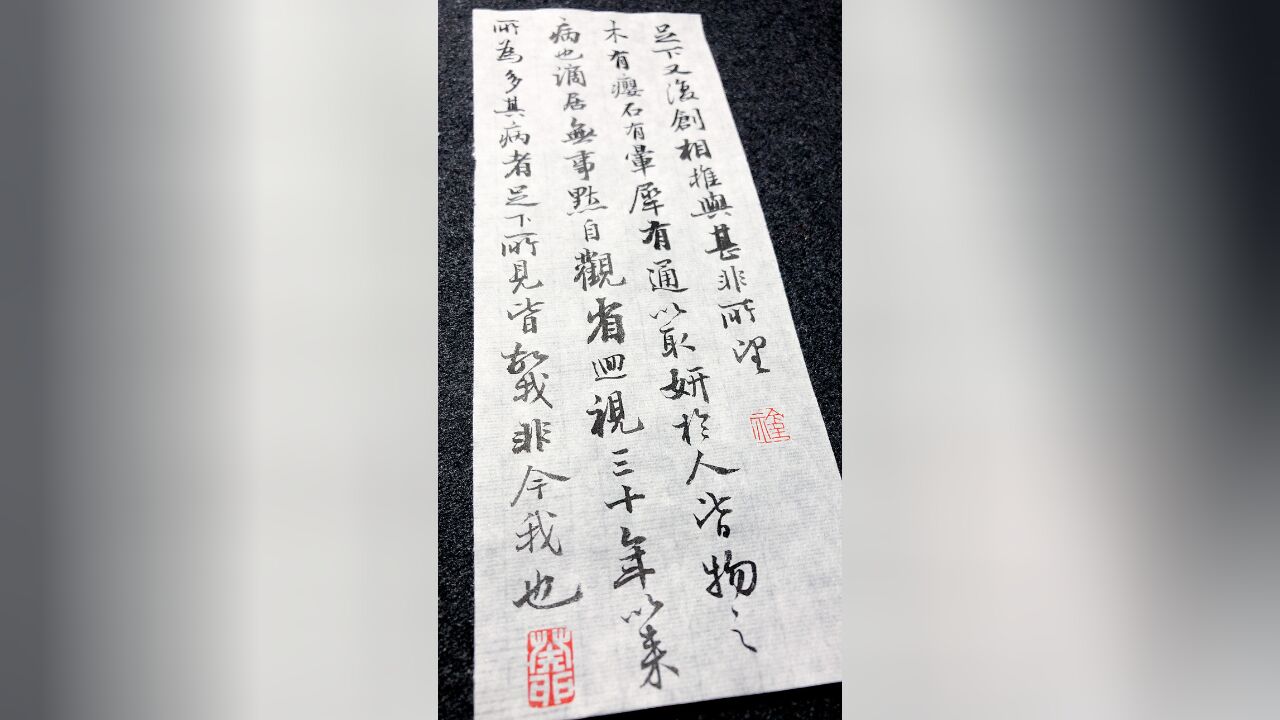 足下又復創相推與甚非所望
木有癭石有暈犀有通以取妍於人皆物之
病也謫居無事默自觀省迴視三十年以来
所為多其病者足下所見皆故我非今我也